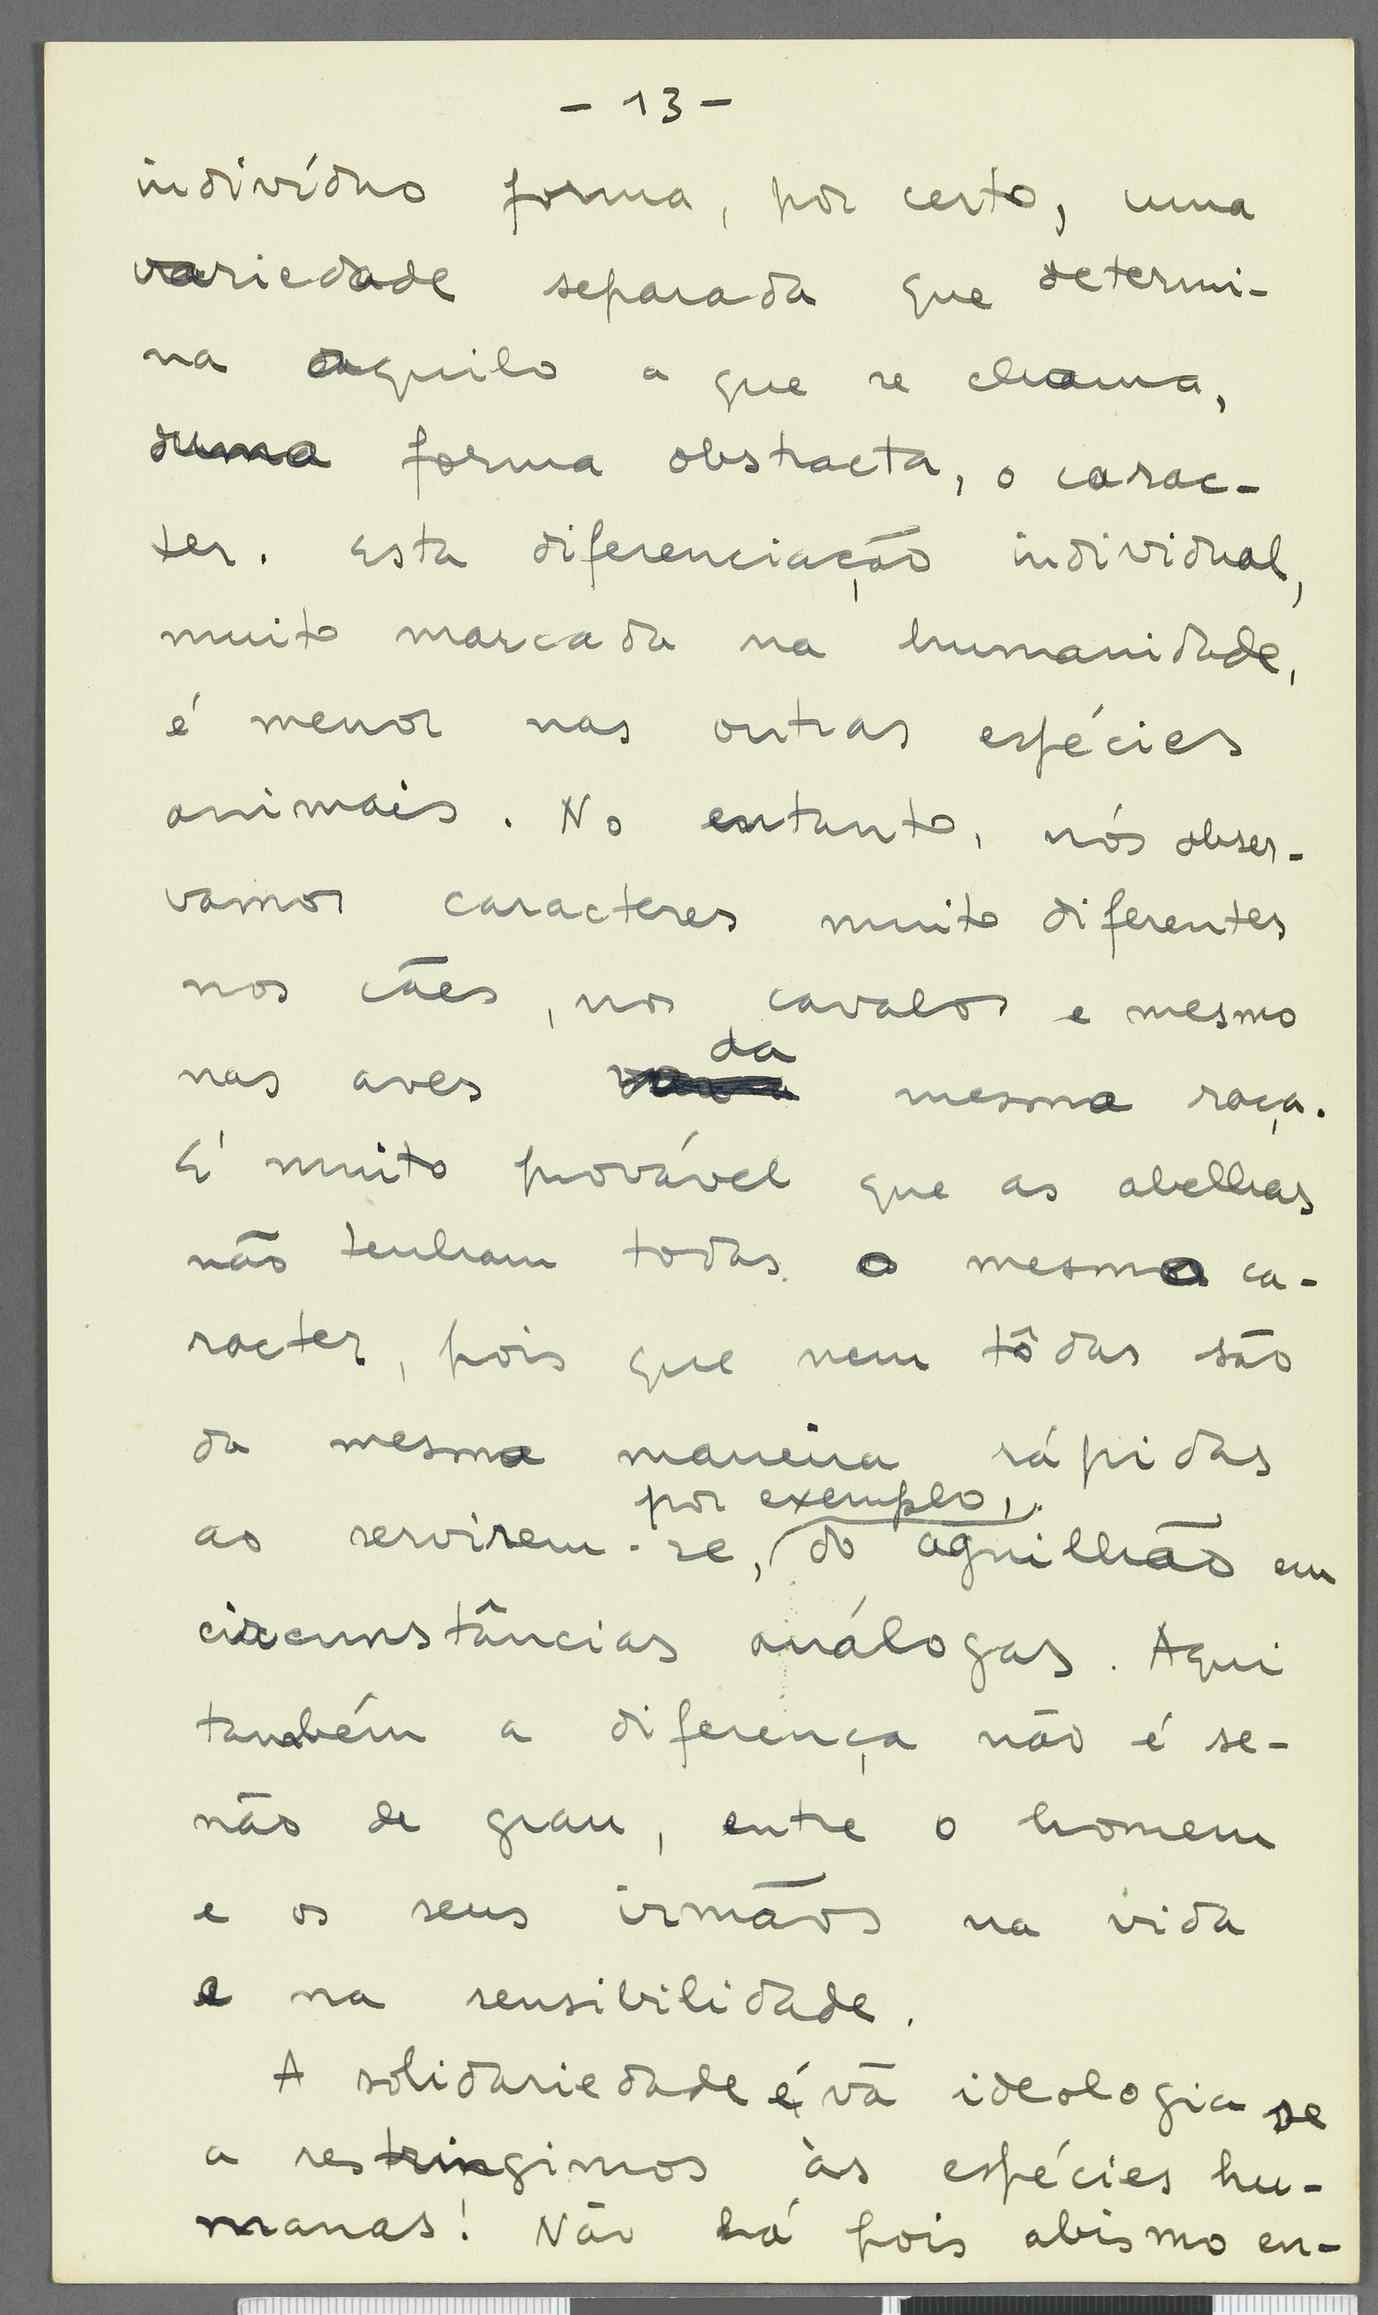 - 13 -
indivíduo forma, por certo, uma
variedade separada que determi-
na aquilo a que se chama,
duma forma abstracta, o carac-
ter. Esta diferenciação individual,
muito marcada na humanidade,
é menor nas outras espécies
animais. No entanto, nós obser-
vamos caracteres muito diferentes
nos cães, nos cavalos e mesmo
da
nas aves mesma raça.
É muito provável que as abelhas
não tenham todas o mesmo ca-
racter, pois que nem tôdas são
da mesma maneira rápidas
por exemplo,
ao servirem-se, do aguilhão em
circunstâncias análogas. Aqui
também a diferença não é se-
não de grau, entre o homem
e os seus irmãos na vida
e na sensibilidade.
A solidariedade é vã ideologia se
a restringimos às espécies hu-
manas! Não há pois abismo en-